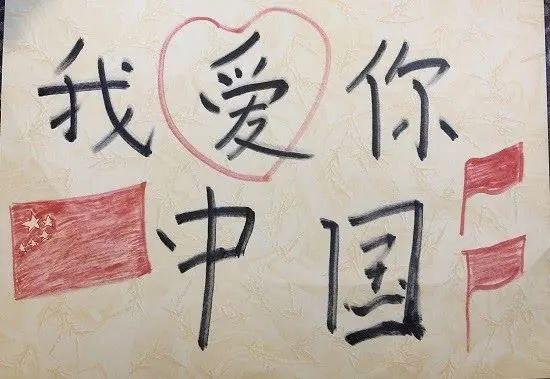 我爱你
中国